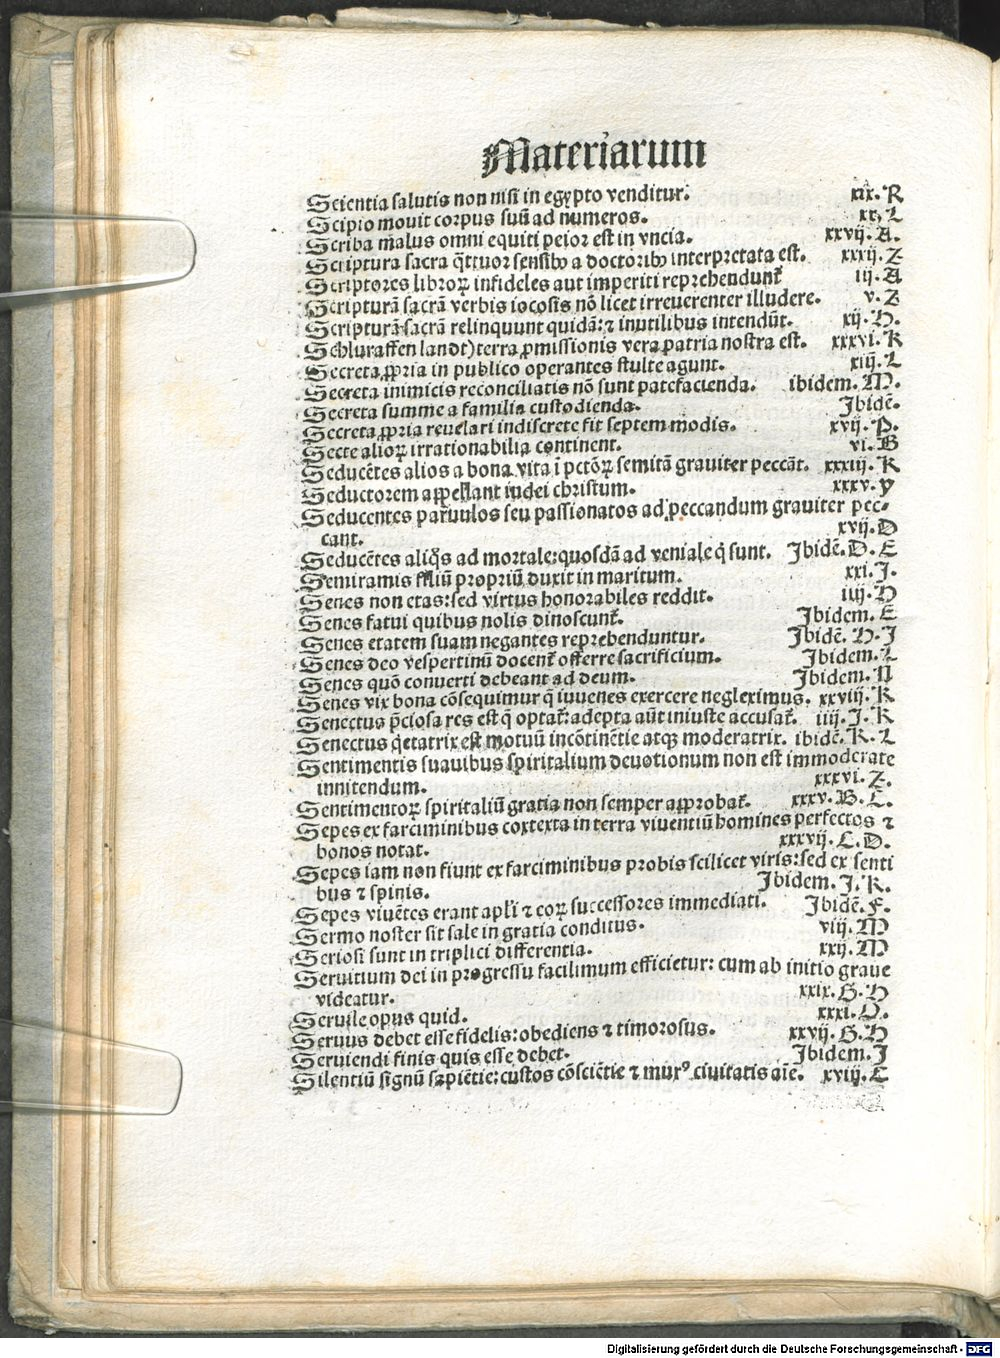 Materiarum
Scientia salutis non nisi in egypto venditur. xix. R
Scipio mouit corpus suū ad numeros. xx. L
Scriba malus omni equiti peior est in vncia. xxvij. A.
Scriptura sacra q̄ttuor sensibꝰ a doctoribꝰ interpretata est. xxxij. Z
Scriptores libroꝝ infideles aut imperiti reprehendunt᷑ iij. A
Scripturā sacrā verbis iocosis nō licet irreuerenter illudere. v. Z
Scripturā sacrā relinquunt quidā: ⁊ inutilibus intendūt. xij. H.
Schluraffen landt) terra ꝓmissionis vera patria nostra est. xxxvi. K
Secreta ꝓpria in publico operantes stulte agunt. xiij. L
Secreta inimicis reconciliatis nō sunt patefacienda. ibidem. M.
Secreta summe a familia custodienda. Ibidē.
Secreta ꝓpria reuelari indiscrete fit septem modis. xvij. P.
Secte alioꝝ irrationabilia continent. vi. B
Seducētes alios a bona vita ī pctōꝝ semitā grauiter peccāt. xxxiij. K
Seductorem appellant iudei christum. xxxv. Y
Seducentes paruulos seu passionatos ad peccandum grauiter pec-
cant. xvij. D
Seducētes aliq̄s ad mortale: quosdā ad veniale q̇ sunt. Ibidē. D. E
Semiramis filiū propriū duxit in maritum. xxi. J.
Senes non etas: sed virtus honorabiles reddit. iiij. H
Senes fatui quibus nolis dinoscunt᷑. Ibidem. E
Senes etatem suam negantes reprehenduntur. Ibidē. H. J
Senes deo vespertinū docent᷑ offerre sacrificium. Ibidem. L
Senes quō conuerti debeant ad deum. Ibidem. N
Senes vix bona cōsequimur q̄ iuuenes exercere negleximus. xxviij. K
Senectus p̄ciosa res est q̄ optat᷑: adepta aūt iniuste accusat᷑. iiij. J. K
Senectus q̇etatrix est motuū incōtinētie atqꝫ moderatrix. ibidē. K. L
Sentimentis suauibus spiritalium deuotionum non est immoderate
innitendum. xxxvi. Z.
Sentimentoꝝ spiritaliū gratia non semper approbat᷑. xxxv. B. C.
Sepes ex farciminibus cōtexta in terra viuentiū homines perfectos ⁊
bonos notat. xxxvij. C. D.
Sepes iam non fiunt ex farciminibus probis scilicet viris: sed ex senti
bus ⁊ spinis. Ibidem. J. K.
Sepes viuētes erant apl̄i ⁊ eoꝝ successores immediati. Ibidē. F.
Sermo noster sit sale in gratia conditus. viij. M
Seriosi sunt in triplici differentia. xxij. M
Seruitium dei in progressu facilimum efficietur: cum ab initio graue
videatur. xxix. G. H
Seruile opus quid. xxxi. O.
Seruus debet esse fidelis: obediens ⁊ timorosus. xxvij. G. H
Seruiendi finis quis esse debet. Ibidem. J
Silentiū signū sapiētie: custos cōsciētie ⁊ murꝰ ciuitatis aīe. xviij. C
Digitalisierung gefördert durch die Deutsche Forschungsgemeinschaft - DFG